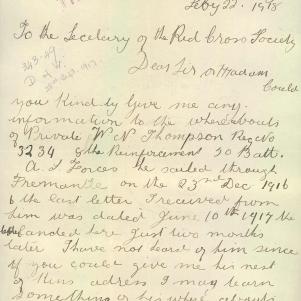 Feby 22. 1918
To the Secretary of the Red Cross Society
Dear Sir or Madam
Could
you Kindly Give me any
information to the whereabouts
of Private W N Thompson Reg No
3234 8th Reinforcement 50 Batt.
A. I Forces he sailed through
Fremantle on the 23rd Dec 1916
the last letter I received from
him was dated June 10th 1917 he
landed here just two months
later I have not heard of him since
if you could give me his next
of Kins adress I may learn
something of his where abouts